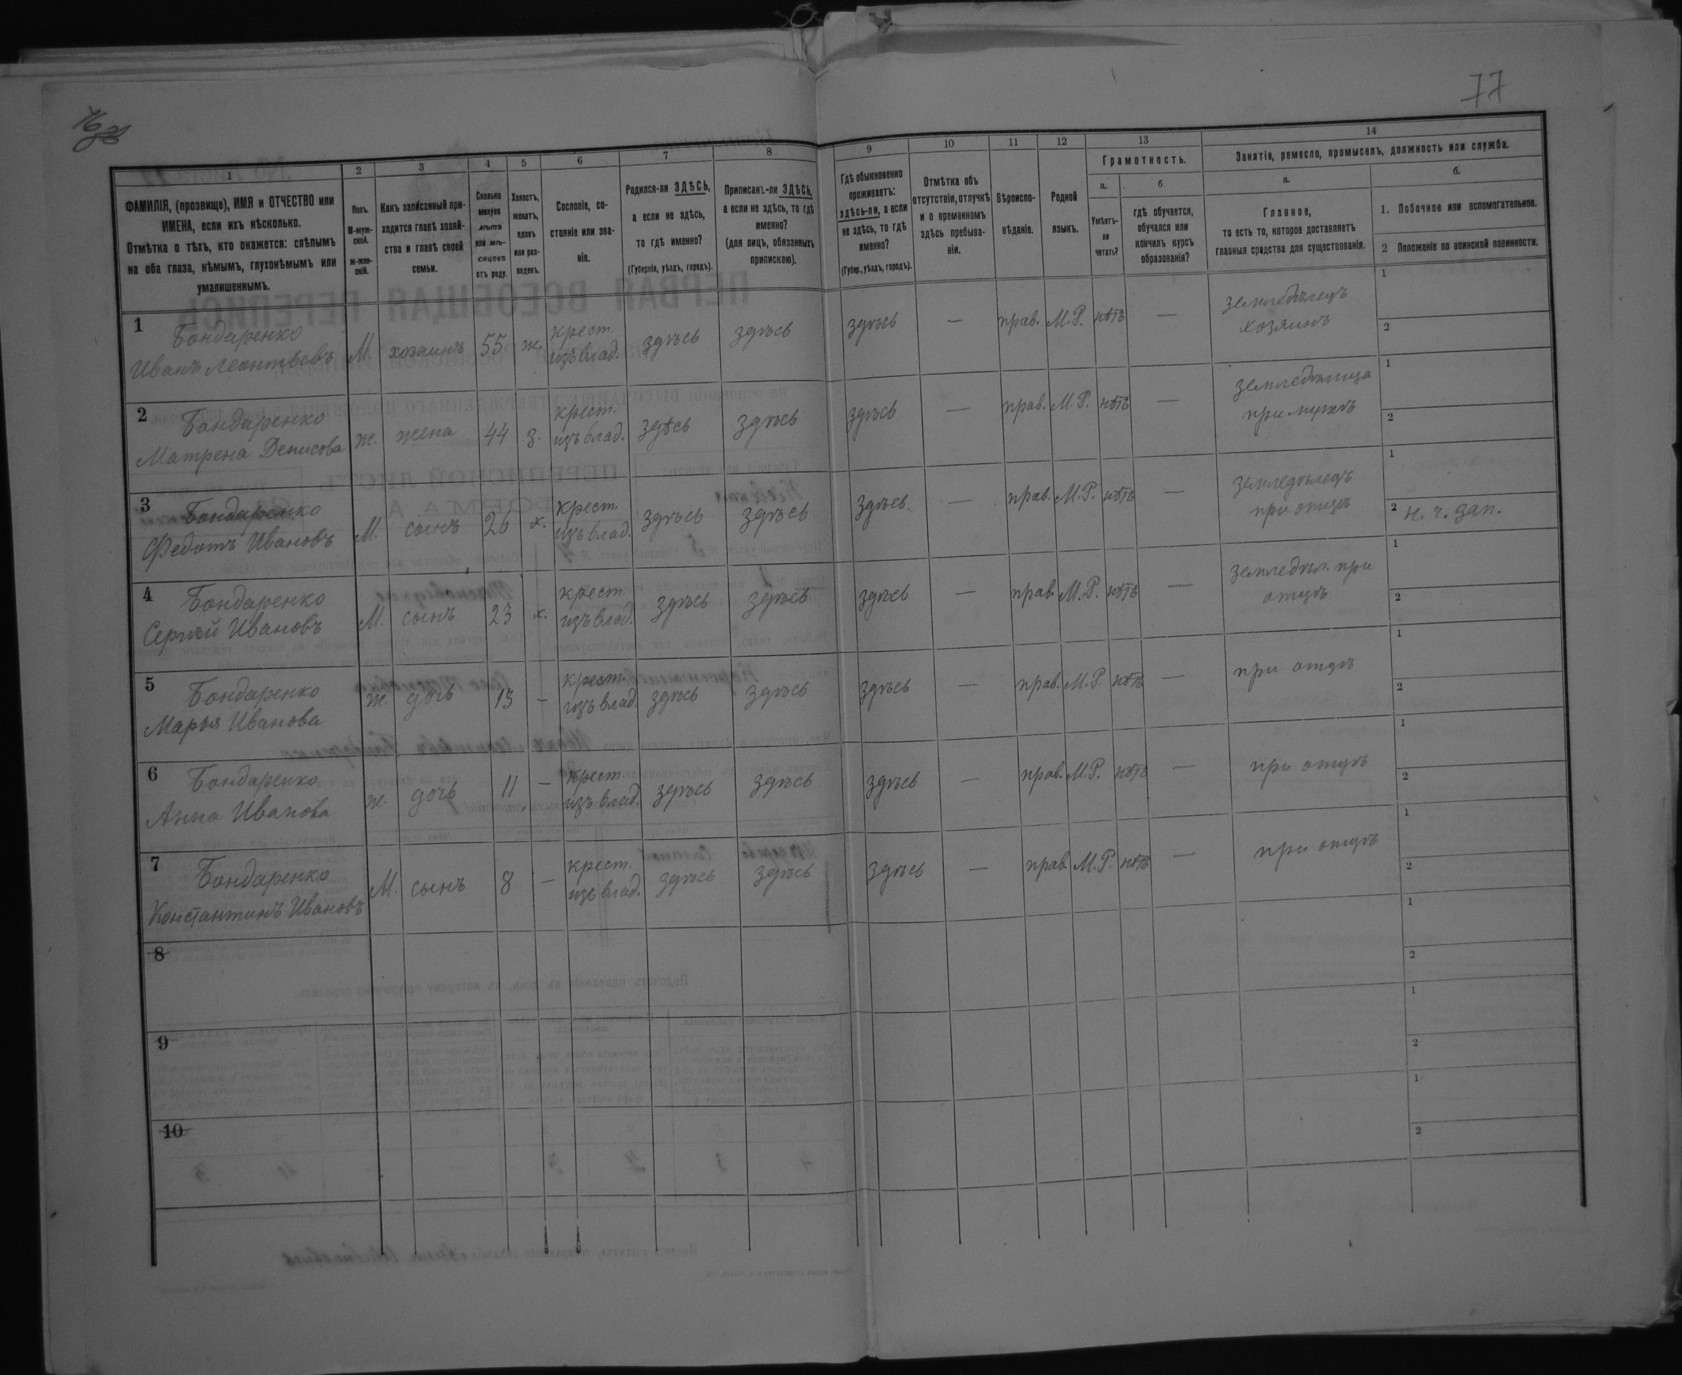 77
1
2
3
4
5
6
7
8
9
10
11
12
13
14
ФАМИЛІЯ, (прозвище), ИМЯ и ОТЧЕСТВО или
ИМЕНА, если ихъ нѣсколько.
Отмѣтка о тѣхъ, кто окажется: слѣпымъ
на оба глаза, нѣмымъ, глухонѣмымъ или
умалишеннымъ.
Полъ.
М-муж-
ской.
Ж-жен-
скій.
Какъ записанный при-
ходится главѣ хозяй-
ства и главѣ своей
семьи.
Сколько
минуло
лѣтъ
или мѣ-
сяцевъ
отъ роду.
Холостъ,
женатъ,
вдовъ
или раз-
веденъ.
Сословіе, со-
стояніе или зва-
ніе.
Родился-ли ЗДѢСЬ,
а если не здѣсь,
то гдѣ именно?
(Губернія, уѣздъ, городъ).
Приписанъ-ли ЗДѢСЬ,
а если не здѣсь, то гдѣ
именно?
(для лицъ, обязанныхъ
припискою).
Гдѣ обыкновенно
проживаетъ:
здѣсь-ли, а если
не здѣсь, то гдѣ
именно?
(Губер., уѣздъ, городъ).
Отмѣтка объ
отсутствіи, отлучкѣ
и о временномъ
здѣсь пребыва-
ніи.
Вѣроиспо-
вѣданіе.
Родной
языкъ.
Грамотность.
а.
Умѣетъ-
ли
читать?
б
гдѣ обучается,
обучался или
кончилъ курсъ
образованія?
Занятіе, ремесло, промыселъ, должность или служба.
а.
Главное,
то есть то, которое доставляетъ
главныя средства для существованія.
б.
1. Побочное или вспомогательное.
2 Положеніе по воинской повинности.
1
Бондаренко
Иванъ Леонтьевъ
М. хозяинъ 55 ж. крест. изъ влад. здѣсь здѣсь здѣсь — прав. М.Р. нѣтъ —
земледѣлецъ
хозяинъ
1
2
2
Бондаренко
Матрена Денисова
ж. жена 44 з. крест. изъ влад. здѣсь здѣсь здѣсь — прав. М.Р. нѣтъ —
при мужѣ
1
2
3
Бондаренко
Федотъ Ивановъ
М. сынъ 26 х. крест. изъ влад. здѣсь здѣсь здѣсь — прав. М.Р. нѣтъ —
земледѣлецъ
при отцѣ
1
2 н. ч. зап.
4
Бондаренко
Сергѣй Ивановъ
М. сынъ 23 х. крест. изъ влад. здѣсь здѣсь здѣсь — прав. М.Р. нѣтъ —
земледѣл. при
отцѣ
1
2
5
Бондаренко
Марья Иванова
ж. дочь — крест. изъ влад. здѣсь здѣсь здѣсь — прав. М.Р. нѣтъ —
при отцѣ
1
2
6
Бондаренко
Анна Иванова
ж. дочь 11 — крест. изъ влад. здѣсь здѣсь здѣсь — прав. М.Р. нѣтъ —
при отцѣ
1
2
7
Бондаренко
Константинъ Ивановъ
М. сынъ 8 — крест. изъ влад. здѣсь здѣсь здѣсь — прав. М.Р. нѣтъ —
при отцѣ
1
2
8
1
2
9
1
2
10
1
2